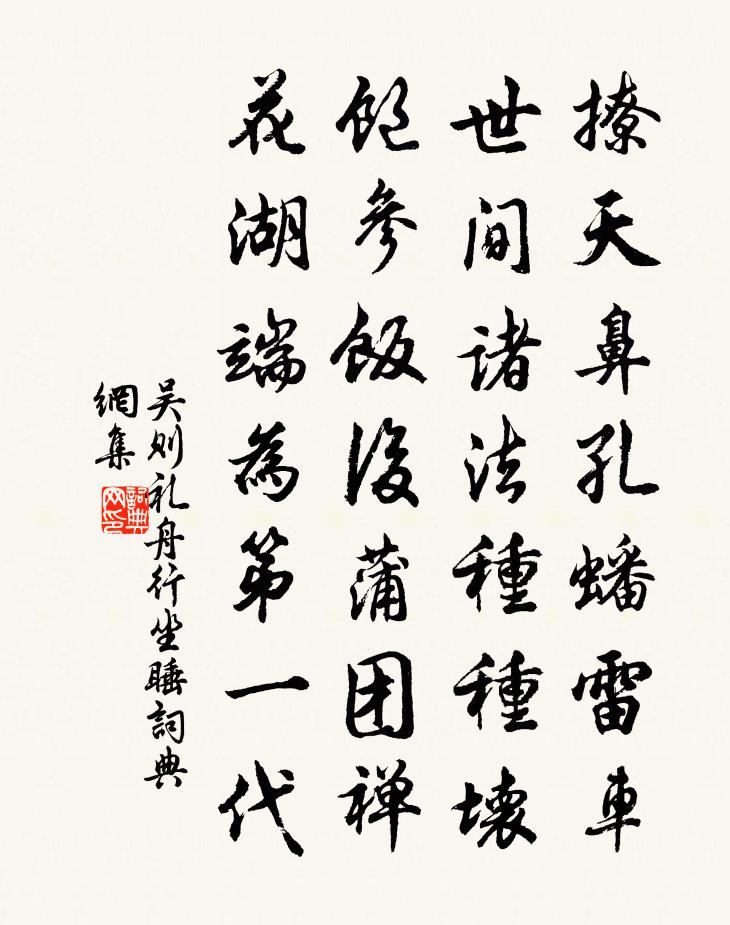 撩天鼻孔蟠雷車
世间諸法種種壊
飽參飯後蒲团禅
花湖端為第一代
吴则礼舟行坐睡詞典
網集
詞典
网印